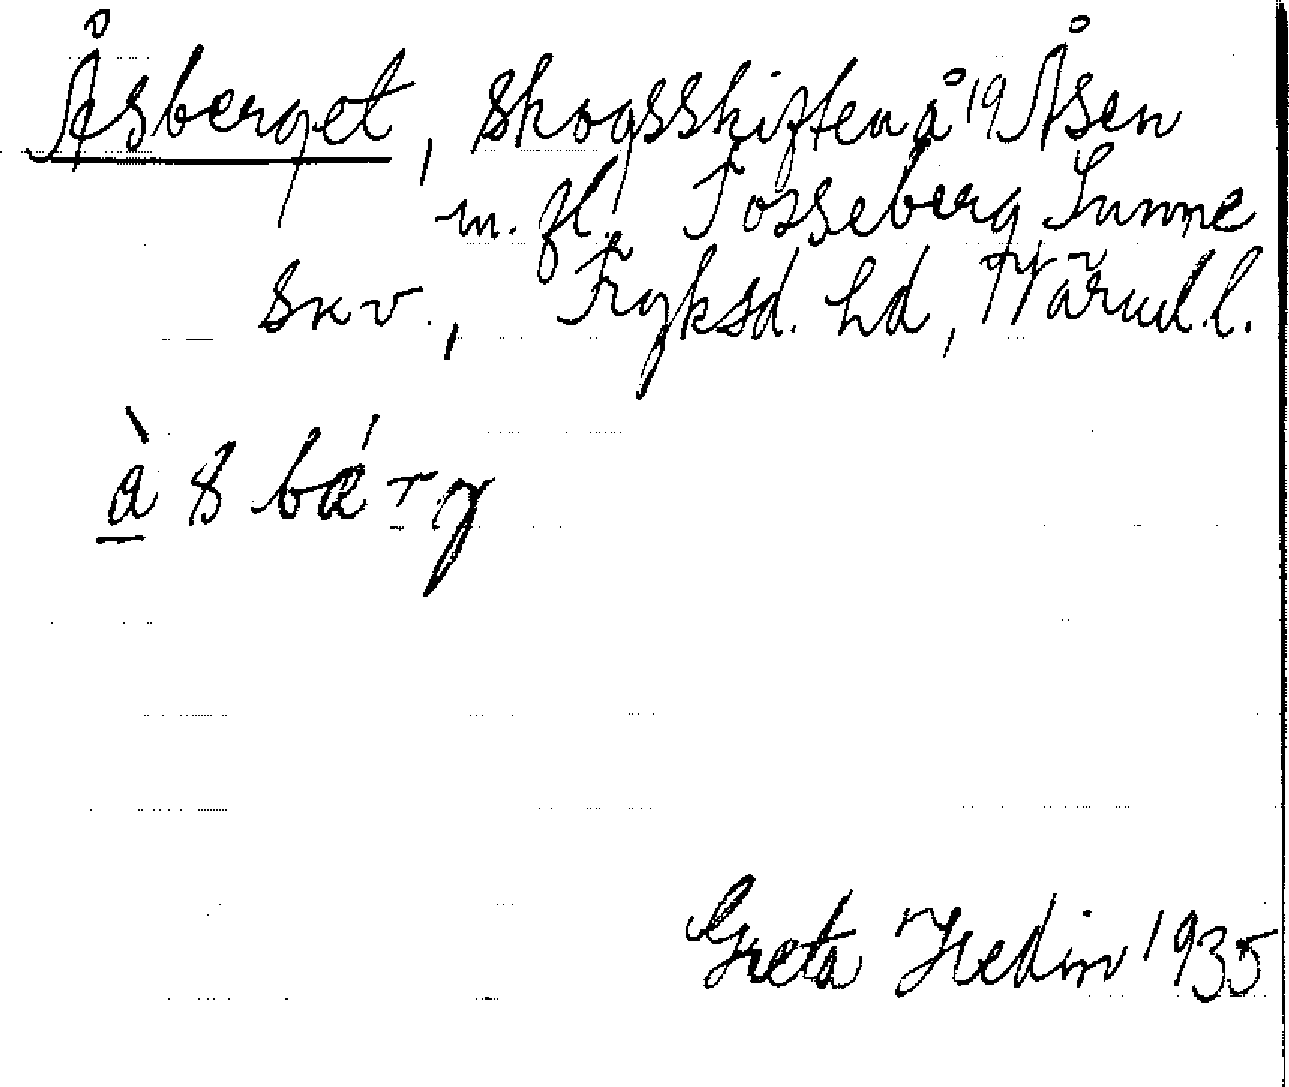 Åsberget, skogsskiften å 19 Åsen
m. fl. Tosseberg Sunne
skv., Fryksd. hd, Värml. l.
à 8 bǽrg
Greta Hedin 1935